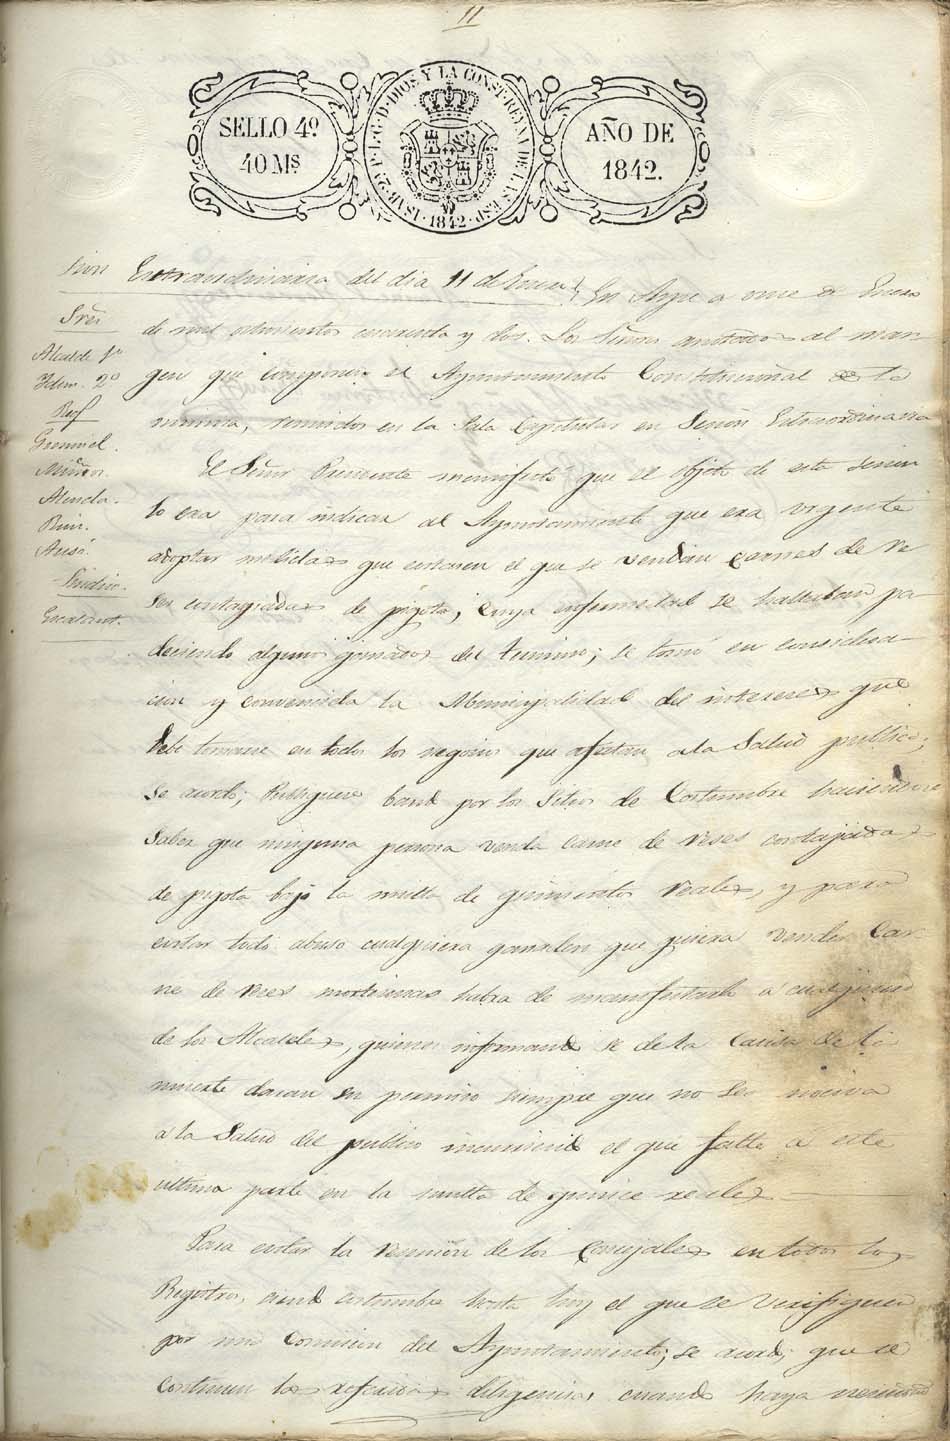 11
SELLO 4º
40 Ms.
ISAB. 2ª P. L. G. D. DIOS Y LA CONST. REYNA DE LAS ESP. 1842
AÑO DE
1842.
sion Extraordinaria del dia 11 de Enero
Sres
Alcalde 1º
Ydem. 2º
Reg
Muñoz.
Ruiz.
Ausó.
Sindico.
Escalant.
En Aspe a once de Enero
de mil ochocientos cuarenta y dos. Los Señores anotados al mar-
gen que componen el Ayuntamiento Constitucional de la
misma, reunidos en la Sala Capitular en Sesion Extraordinaria
El Señor Presidente manifestó que el objeto de esta sesion
lo era para indicar al Ayuntamiento que era urgente
adoptar medidas que evitasen el que se vendan carnes de re
ses contagiadas de pigota, cuya enfermedad se hallaban pa
deciendo algunos ganados del termino; se tomó en considera-
cion y convencida la Municipalidad del interes que
debe tomarse en todos los negocios que afectan a la Salud publica;
Se acordó; Publiquese bando por los Sitios de Costumbre haciendo
Saber que ninguna persona venda carne de reses contajiadas
de pigota bajo la multa de quinientos reales, y para
evitar todo abuso cualquiera ganadero que quiera vender Car-
ne de reses mortecinas habra de manifestarlo a cualquiera
de los Alcaldes, quienes informandose de la Causa de la
muerte daran su permiso siempre que no sea nociva
a la Salud del publico incurriendo el que falte a esta
ultima parte en la multa de quince reales
Para evitar la reunion de los Concejales en todos los
Registros, siendo costumbre hasta hoy el que se verifiquen
por una Comision del Ayuntamiento; se acordó; que se
continuen las referidas diligencias cuando haya necesidad